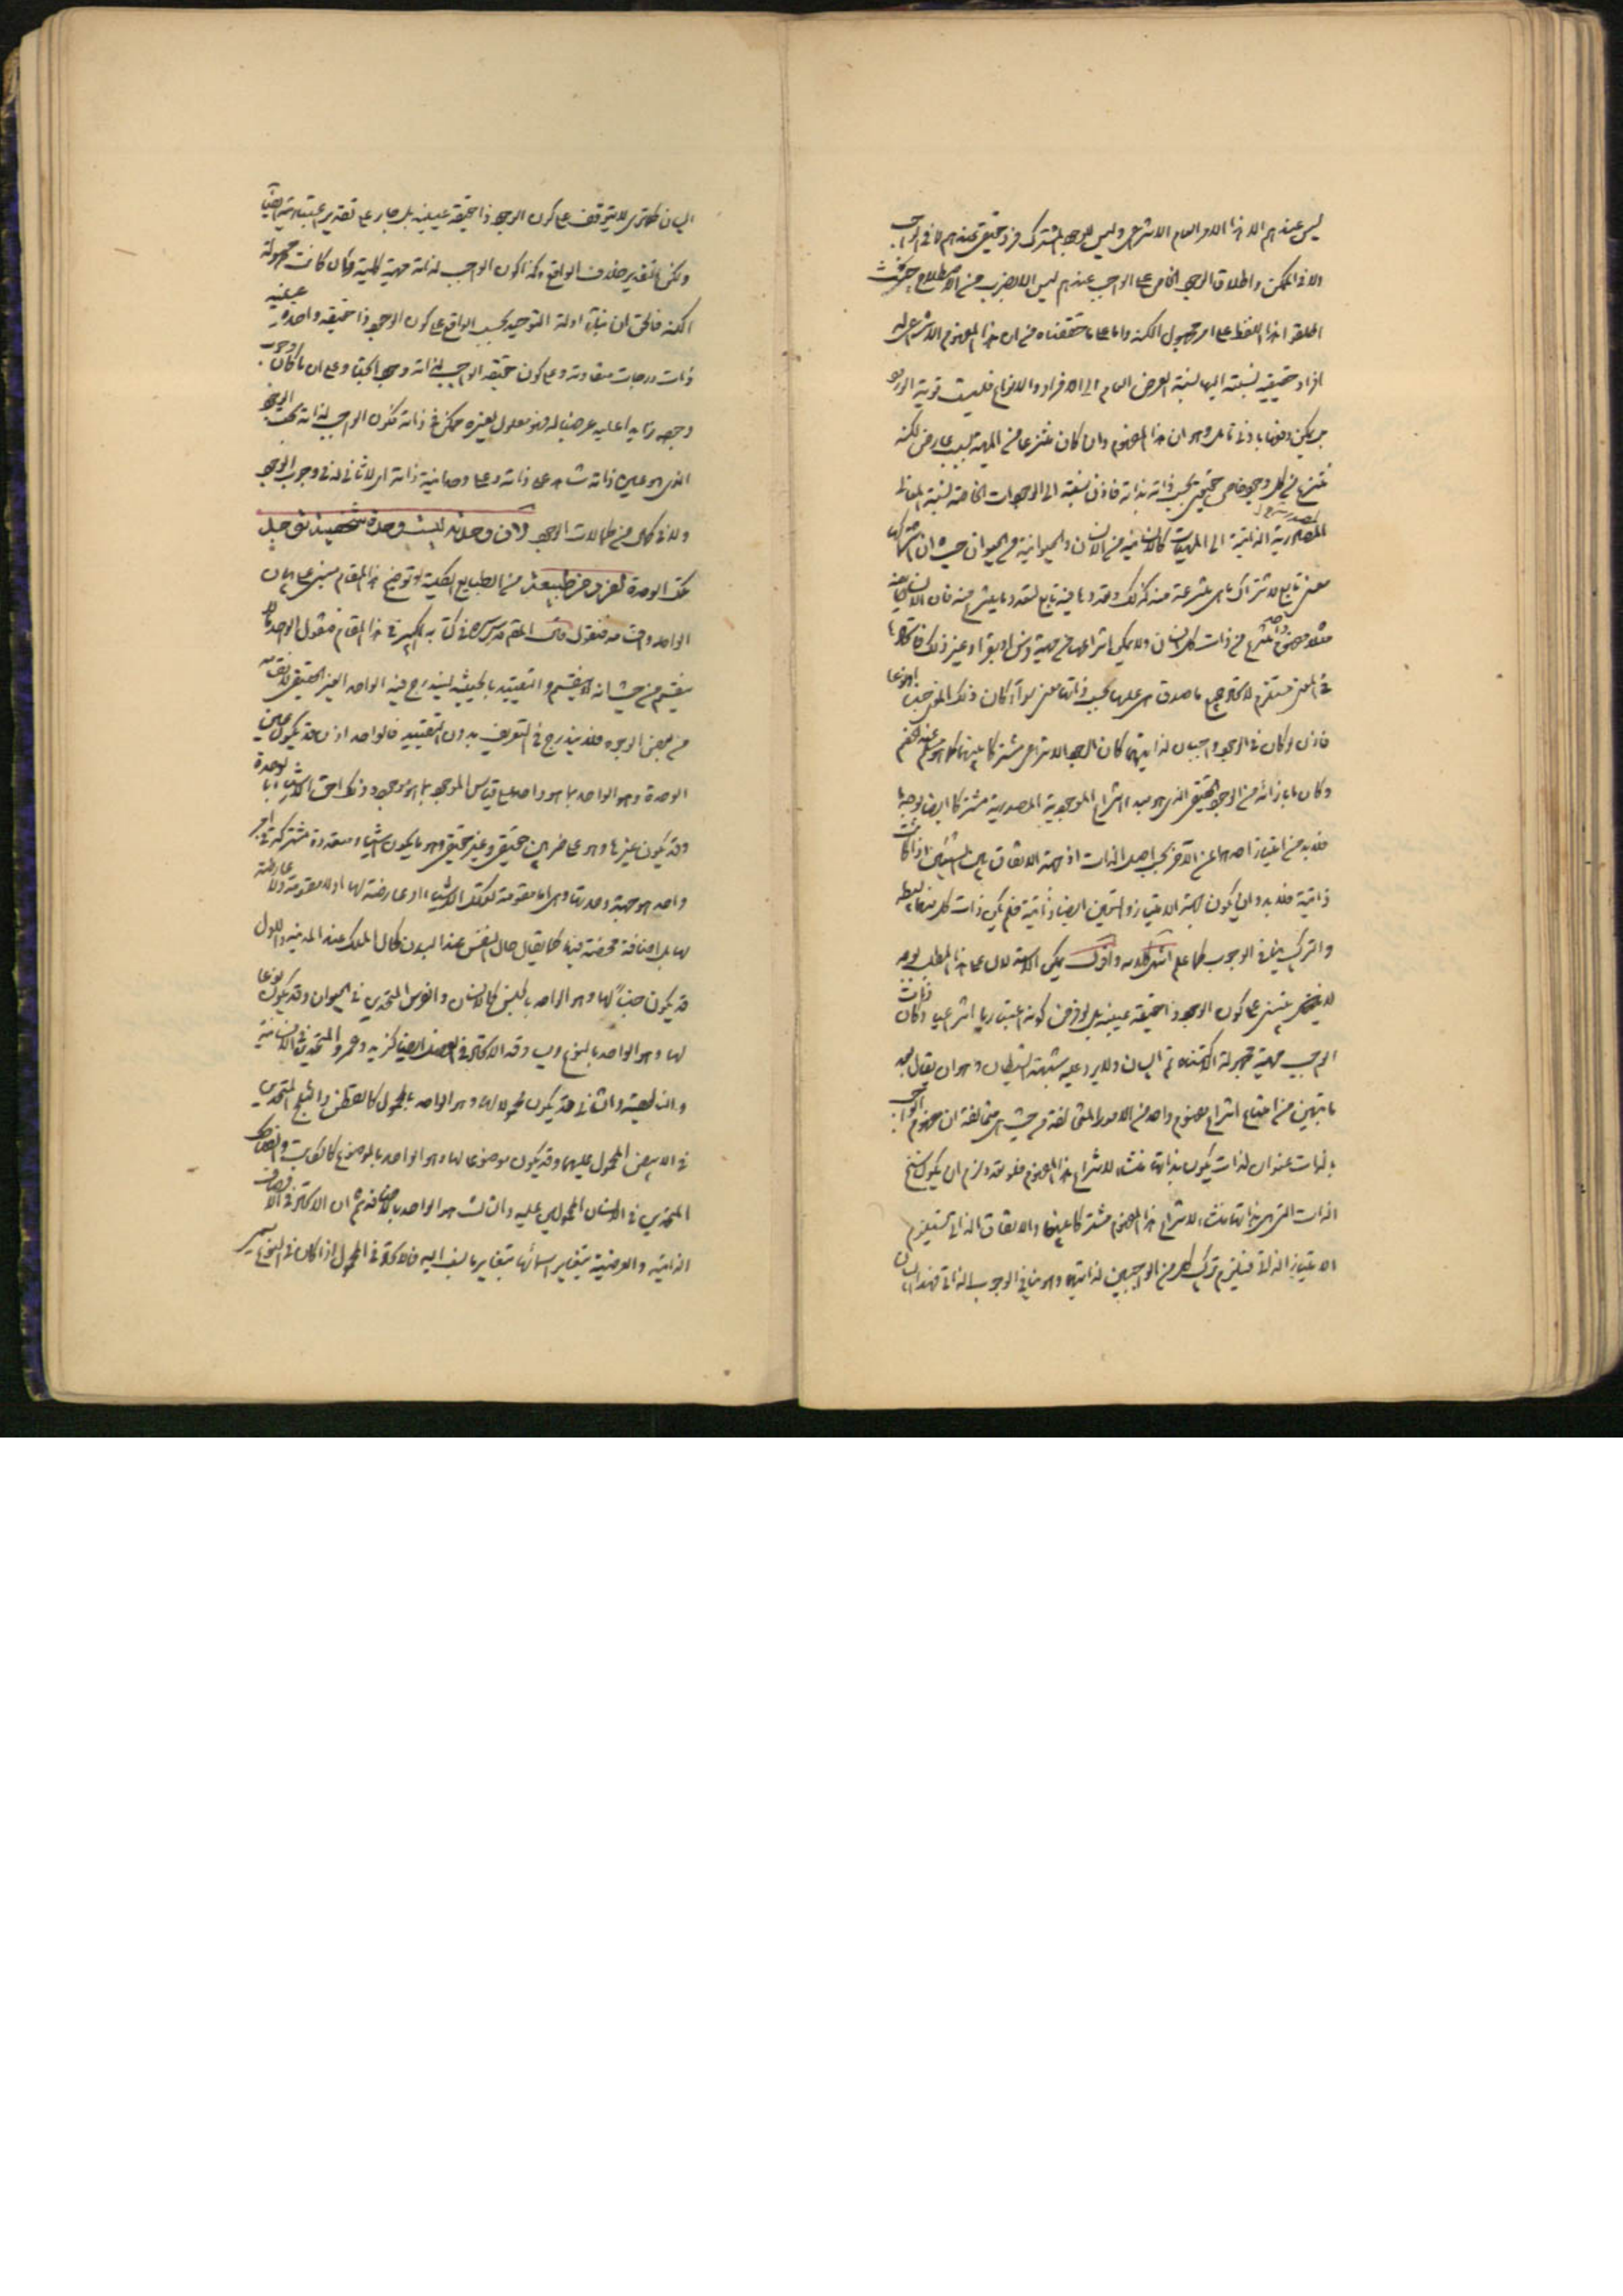 ليس عندهم الا هذا الامر العام الانتزاعى وليس للوجود المشترك فرد حقيقى عندهم لا فى الواجب
ولا فى الممكن واطلاق الوجود الخاص على الواجب عندهم ليس الا بضرب من الاصطلاح حيث
اطلقوا هذا اللفظ على امر مجهول الكنه واما على ما حققناه من ان هذا المفهوم الانتزاعى له
افراد حقيقية نسبته اليها نسبة العرض العام الى الافراد والانواع فليست قوية الورود
بل يمكن دفعها بادنى تامل وهو ان هذا المفهوم وان كان منتزعا من المهية بسبب عارض لكنه
منتزع من كل وجود خاص حقيقى بحسب ذاته بذاته فاذن نسبته الى الوجودات الخاصة نسبة المعانى
المصدرية الذاتية الى المهيات كالانسانية من الانسان والحيوانية من الحيوان حيث ان اشتراكها
معنى تابع لاشتراك ما هى منتزعة منه كذلك وتعددها فيه تابع لتعدد ما ينتزع منه فان الانسانية
مثلا مفهوم واحد منتزع من ذات كل انسان ولا يمكن انتزاعها من مهية فرس او بقر او غير ذلك فاتحادها
فى المعنى مستلزم لاتحاد جميع ما صدق هى عليها بحسب ذاتها معنى سواء كان ذلك المعنى جنسا او نوعا
فاذن لو كان فى الوجود واجبان لذاتيهما كان الوجود الانتزاعى مشتركا بينهما كما هو مسلم عند الخصم
وكان ما بازائه من الوجود الحقيقى الذى هو مبدء انتزاع الموجودية المصدرية مشتركا ايضا بوجه ما
فلا بد من امتياز احدهما عن الآخر بحسب اصل الذات اذ جهة الاتفاق بين الشيئين اذا كانت
ذاتية فلا بد وان يكون جهة الامتياز والتعين ايضا ذاتية فلم يكن ذات كل منهما بسيطة
والتركيب ينافى الوجوب كما علم انتهى كلامه واقول يمكن الاستدلال على هذا المطلب بوجه
لا يبتنى على كون الوجود ذا حقيقة عينية بل لو فرض كونه اعتباريا انتزاعيا وكان ذات
الواجب مهية مجهولة الاكتناه تم البيان ولا يرد عليه شبهة الشيطان وهو ان يقال بعد
ما تبين من امتناع انتزاع مفهوم واحد من الامور المتخالفة من حيث هى متخالفة ان مفهوم الواجب
بالذات عنوان لذات يكون بذاتها منشاء لانتزاع هذا المفهوم فلو تعدد لزم ان يكون سنخ
الذات التى هى بذاتها منشاء لانتزاع هذا المفهوم مشتركا بينهما والاتفاق الذاتى يستلزم
الامتياز الذاتى فيلزم تركب كل من الواجبين لذاتيهما وهو ينافى الوجوب الذاتى فهذا البيان
البيان كما ترى لا يتوقف على كون الوجود ذا حقيقة عينية بل جار على تقدير اعتباريته ايضا
ولكن التقدير خلاف الواقع وكذا كون الواجب لذاته مهية كلية وان كانت مجهولة
الكنه فالحق ان بناء ادلة التوحيد بحسب الواقع على كون الوجود ذا حقيقة واحدة عينية
ذات درجات متفاوتة وعلى كون حقيقة الواجب لذاته وجودا بحتا وعلى ان ما كان وجوب
وجوده زايدا عليه عرضيا له فهو معلول لغيره ممكن فى ذاته فكون الواجب لذاته بحت الوجود
الذى هو عين ذاته شاهد على ذاته وعلى وحدانية ذاته اى لا ثانى له فى وجوب الوجود
ولا فى كمال من كمالات الوجود واذن وحدته ليست وحدة شخصية توجد
تلك الوحدة لفرد من طبيعة من الطبايع الكلية وتوضيح هذا المقام مبنى على بيان
الواحد واقسامه فنقول قال المص قدس سره فى كتابه الكبير فى هذا المقام فنقول الواحد ما لا
ينقسم من حيث انه لا ينقسم والتقييد بالحيثية ليندرج فيه الواحد الغير الحقيقى لانقسامه
من بعض الوجوه فلا يندرج فى التعريف بدون التقييد فالواحد اذن قد يكون عين
الوحدة وهو الواحد بما هو واحد على قياس الموجود بما هو موجود وذلك احق الاشياء بالوحدة
وقد يكون غيرها وهو على ضربين حقيقى وغير حقيقى وهو ما يكون اشياء متعددة مشتركة فى امر
واحد هو جهة وحدتها وهى اما مقومة لتلك الاشياء او عارضة لها او لا مقومة ولا عارضة
لها بل اضافة محضة فيها كما يقال حال النفس عند البدن كحال الملك عند المدينة والاول
قد يكون جنسا لها وهو الواحد بالجنس كالانسان والفرس المتحدين فى الحيوان وقد يكون نوعا
لها وهو الواحد بالنوع ويساوقه الاتحاد فى الفصل ايضا كزيد وعمرو المتحدين فى الانسانية
والناطقية والثانى قد يكون محمولا لها وهو الواحد بالمحمول كالقطن والثلج المتحدين
فى الابيض المحمول عليهما وقد يكون موضوعا لها وهو الواحد بالموضوع كالكاتب والضاحك
المتحدين فى الانسان المحمولين عليه والثالث هو الواحد بالاضافة ثم ان الاتحاد فى الاوصاف
الذاتية والعرضية يتغاير اسمائها بتغاير ما نسب اليه فالاتحاد فى المحمول اذا كان فى النوع يسمى